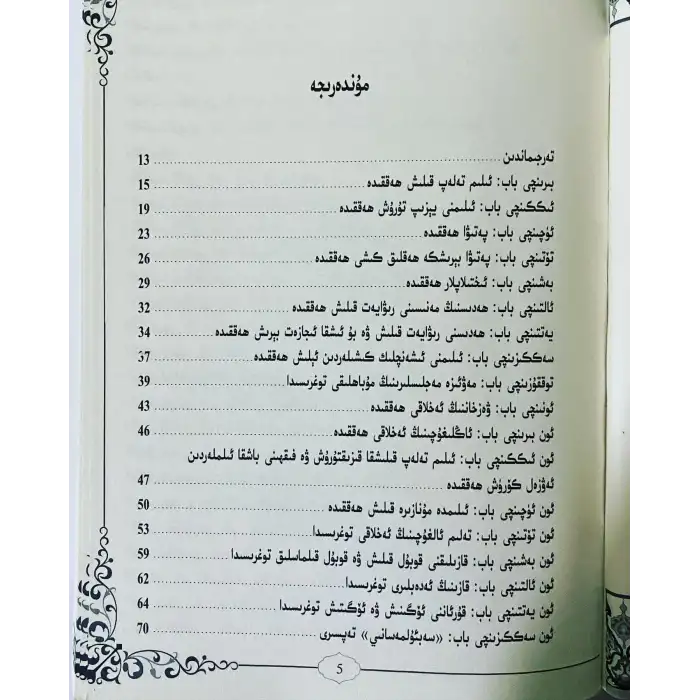 مۇندەرىجە
تەرجىماندىن 13
بىرىنچى باب: ئىلىم تەلەپ قىلىش ھەققىدە 15
ئىككىنچى باب: ئىلىمنى يېزىپ تۇرۇش ھەققىدە 19
ئۈچىنچى باب: پەتىۋا ھەققىدە 23
تۆتىنچى باب: پەتىۋا بېرىشكە ھەقلىق كىشى ھەققىدە 26
بەشىنچى باب: ئىختىلاپلار ھەققىدە 29
ئالتىنچى باب: ھەدىسنىڭ مەنىسىنى رىۋايەت قىلىش ھەققىدە 32
يەتتىنچى باب: ھەدىسنى رىۋايەت قىلىش ۋە بۇ ئىشقا ئىجازەت بېرىش ھەققىدە 34
سەككىزىنچى باب: ئىلىمنى ئىشەنچلىك كىشىلەردىن ئېلىش ھەققىدە 37
توققۇزىنچى باب: مەۋئىزە مەجلىسلىرىنىڭ مۇباھلىقى توغرىسىدا 39
ئونىنچى باب: ۋەزخاننىڭ ئەخلاقى ھەققىدە 43
ئون بىرىنچى باب: ئاڭلىغۇچىنىڭ ئەخلاقى ھەققىدە 46
ئون ئىككىنچى باب: ئىلىم تەلەپ قىلىشقا قىزىقتۇرۇش ۋە فىقھىنى باشقا ئىلىملەردىن
ئەۋزەل كۆرۈش ھەققىدە 47
ئون ئۈچىنچى باب: ئىلىمدە مۇنازىرە قىلىش ھەققىدە 50
ئون تۆتىنچى باب: تەلىم ئالغۇچىنىڭ ئەخلاقى توغرىسىدا 53
ئون بەشىنچى باب: قازىلىقنى قوبۇل قىلىش ۋە قوبۇل قىلماسلىق توغرىسىدا 59
ئون ئالتىنچى باب: قازىنىڭ ئەدەبلىرى توغرىسىدا 62
ئون يەتتىنچى باب: قۇرئاننى ئۆگىنىش ۋە ئۆگىتىش توغرىسىدا 64
ئون سەككىزىنچى باب: «سەبئۇلمەساني» تەپسىرى 70
5